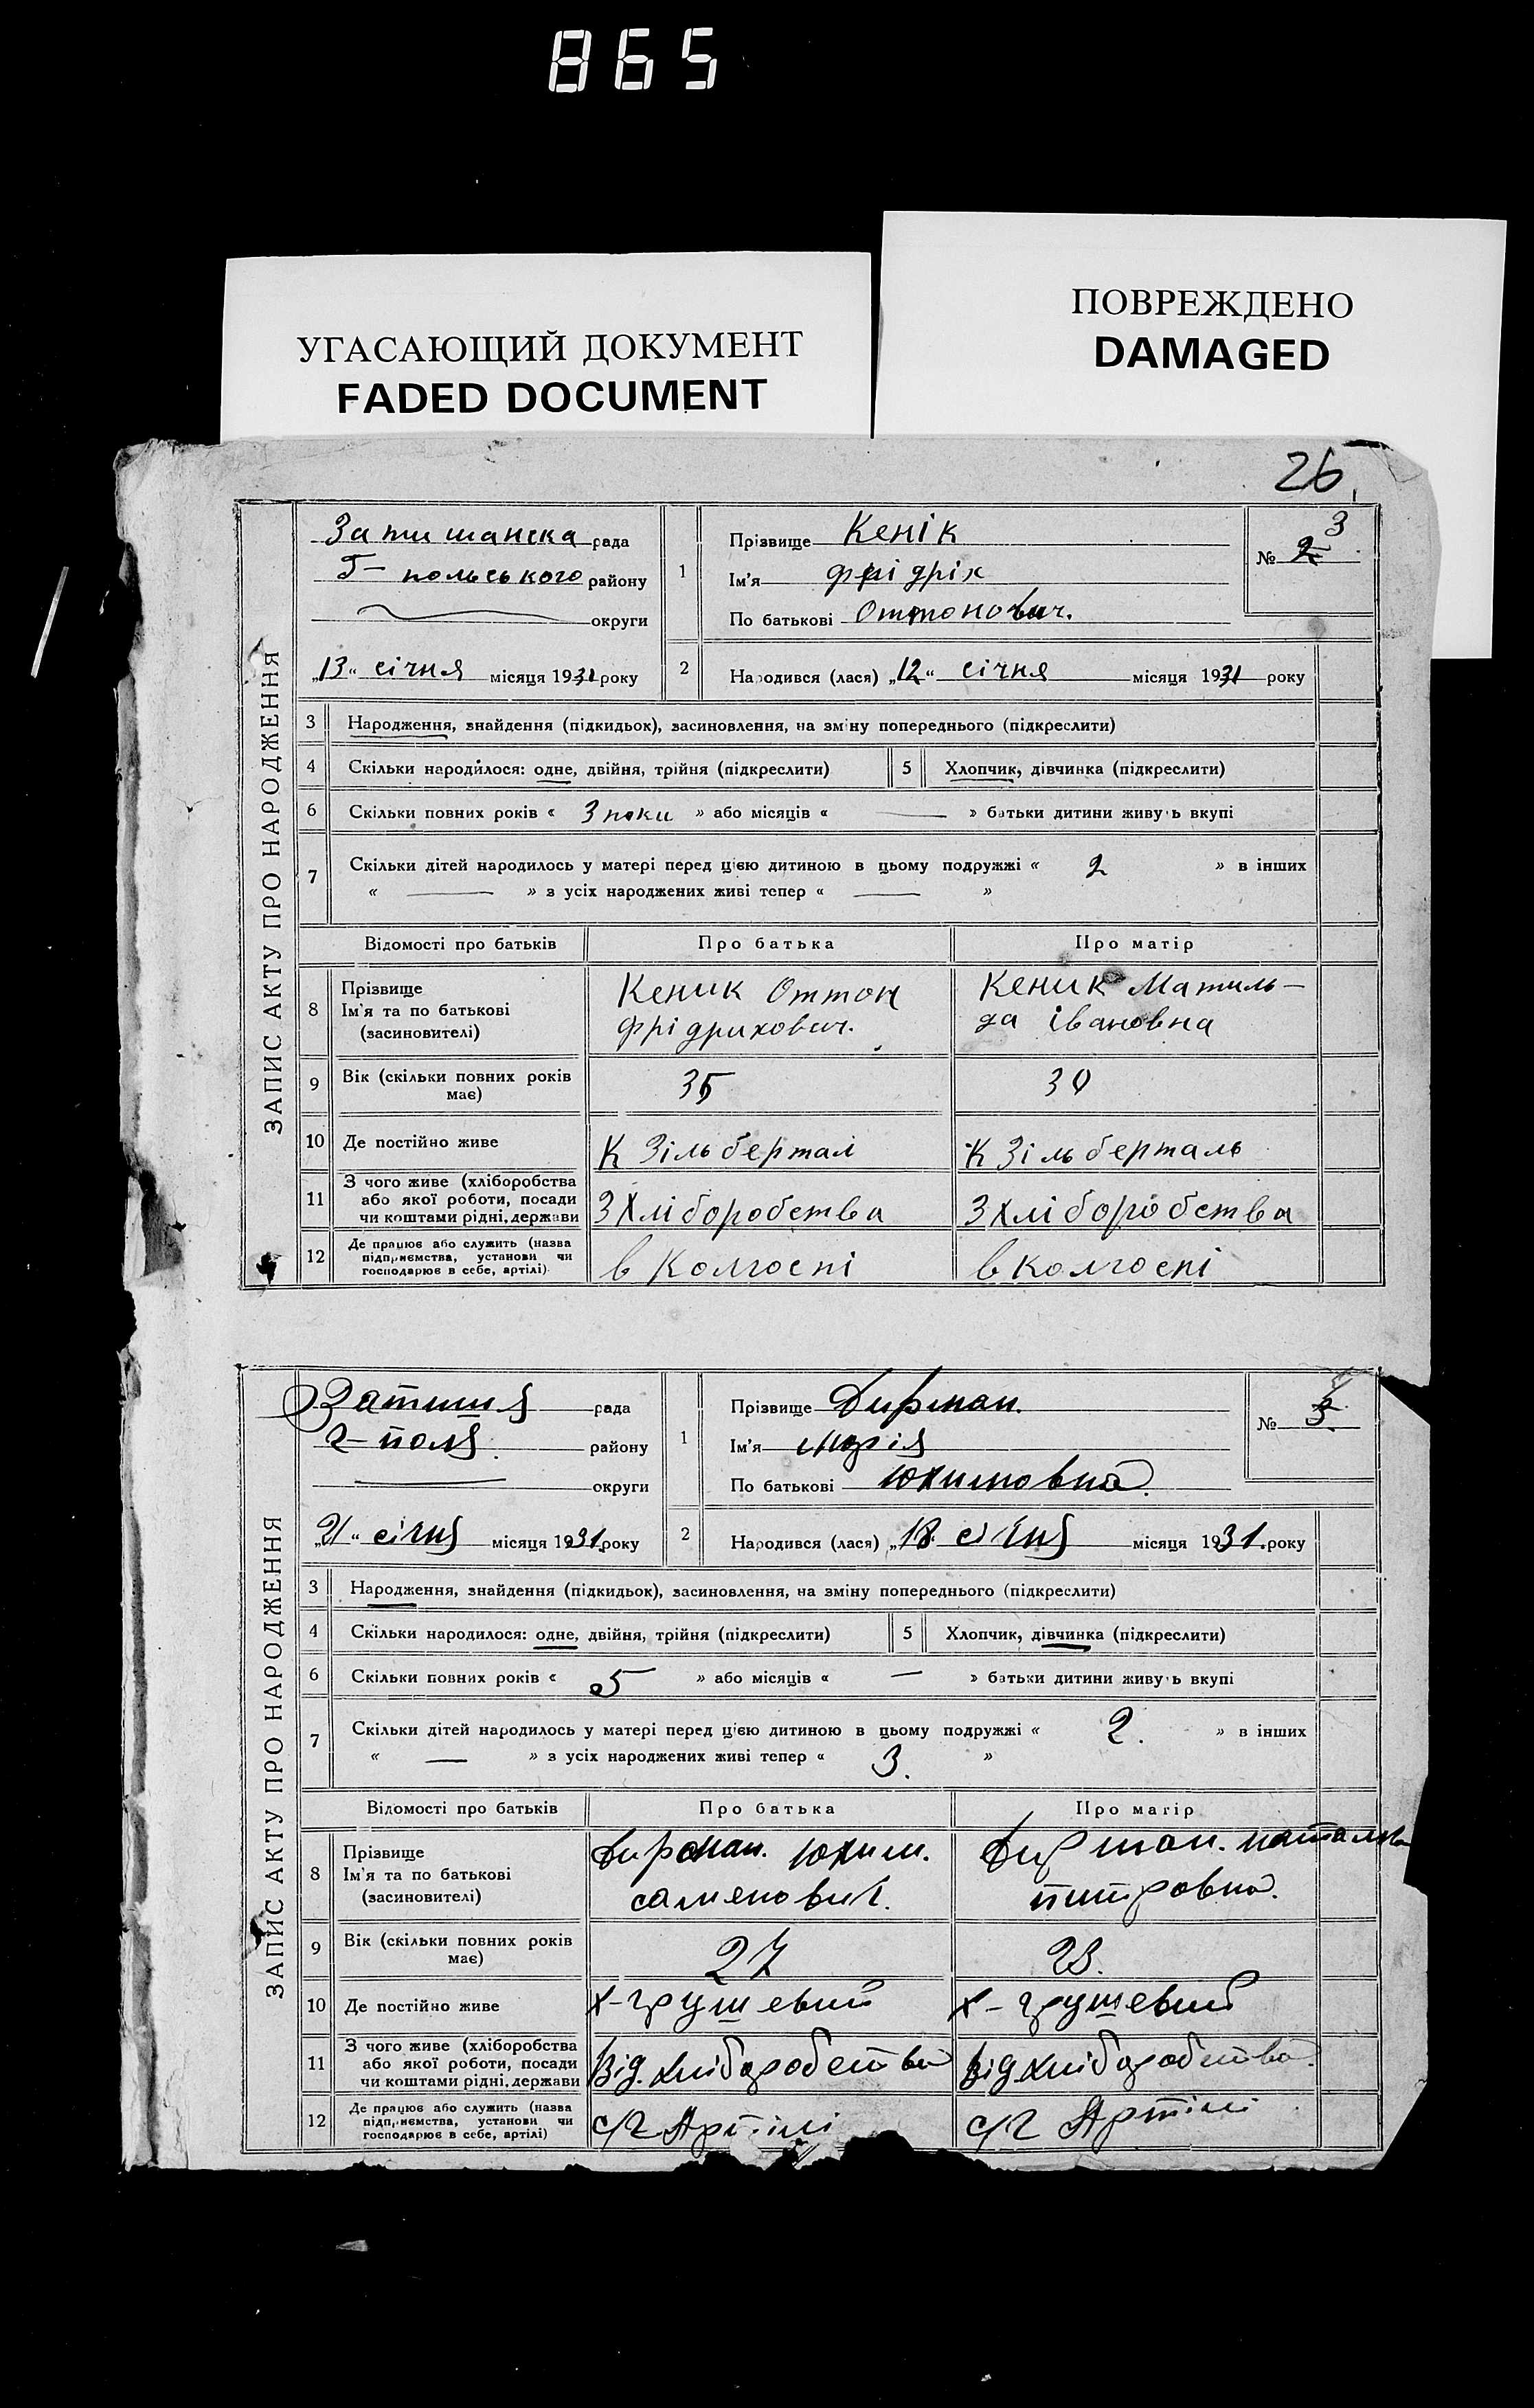 865
УГАСАЮЩИЙ ДОКУМЕНТ
FADED DOCUMENT
ПОВРЕЖДЕНО
DAMAGED
26
ЗАПИС АКТУ ПРО НАРОДЖЕННЯ
Затишанска рада
Г- польського району
округи
„13“ січня місяця 1931 року
1 Прізвище Кенік
Ім'я Фрідріх
По батькові Оттонович.
№ 2 3
2 Народився (лася) „12“ січня місяця 1931 року
3 Народження, знайдення (підкидьок), засиновлення, на зміну попереднього (підкреслити)
4 Скільки народилося: одне, двійня, трійня (підкреслити) 5 Хлопчик, дівчинка (підкреслити)
6 Скільки повних років « 3 роки » або місяців « — » батьки дитини живуть вкупі
7 Скільки дітей народилось у матері перед цією дитиною в цьому подружжі « 2 » в інших
« — » з усіх народжених живі тепер « — »
Відомості про батьків Про батька Про матір
8 Прізвище Ім'я та по батькові (засиновителі)
Кеник Оттон
Фрідрихович.
Кеник Матиль-
да Івановна
9 Вік (скільки повних років має) 35 30
10 Де постійно живе К Зільбертал К Зільберталь
11 З чого живе (хліборобства або якої роботи, посади чи коштами рідні, держави З Хліборобства З Хліборобства
12 Де працює або служить (назва підприємства, установи чи господарює в себе, артілі) в Колгоспі в Колгоспі
ЗАПИС АКТУ ПРО НАРОДЖЕННЯ
Затишя рада
г-поля. району
округи
„21“ січня місяця 1931 року
1 Прізвище Дирман.
Ім'я Марія
По батькові Юхимовна.
№ 3
2 Народився (лася) „18. січня місяця 1931. року
3 Народження, знайдення (підкидьок), засиновлення, на зміну попереднього (підкреслити)
4 Скільки народилося: одне, двійня, трійня (підкреслити) 5 Хлопчик, дівчинка (підкреслити)
6 Скільки повних років « 5 » або місяців « — » батьки дитини живуть вкупі
7 Скільки дітей народилось у матері перед цією дитиною в цьому подружжі « 2. » в інших
« — » з усіх народжених живі тепер « 3. »
Відомості про батьків Про батька Про матір
8 Прізвище Ім'я та по батькові (засиновителі)
Дирман. Юхим.
саменович.
Дирман. наталка
питровна.
9 Вік (скільки повних років має) 27 23.
10 Де постійно живе х-грушевий х-грушевий
11 З чого живе (хліборобства або якої роботи, посади чи коштами рідні, держави Від. хліборобства Від хліборобства.
12 Де працює або служить (назва підприємства, установи чи господарює в себе, артілі) с/г Артілі с/г Артілі